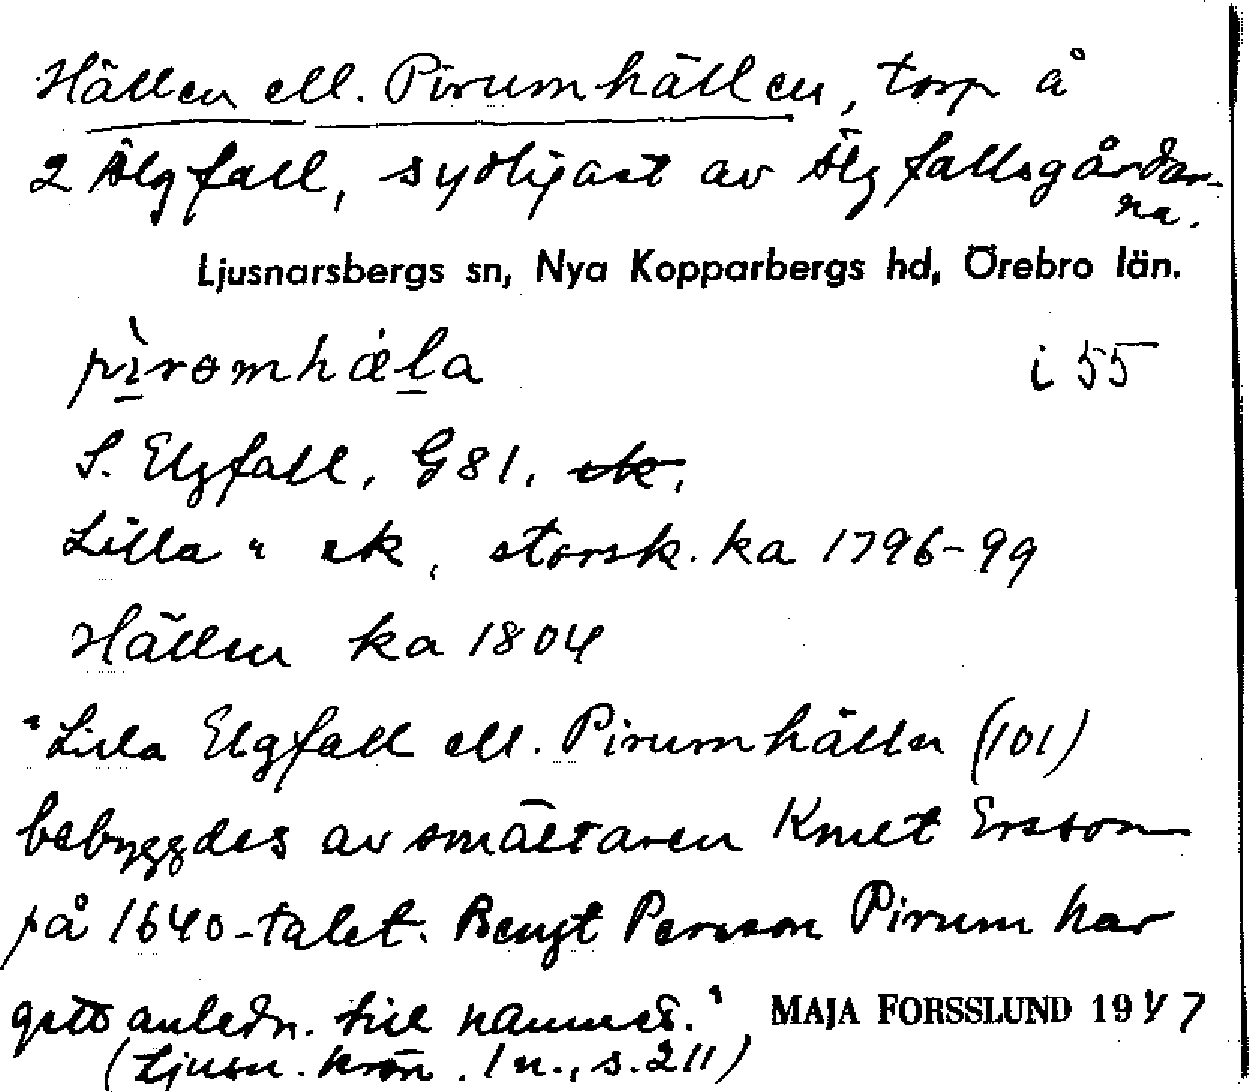 Hällen ell. Pirumhällen, torp å
2 Älgfall, sydligast av Älgfallsgårdar-
na.
Ljusnarsbergs sn, Nya Kopparbergs hd, Örebro län.
pìromhæla i 55
S. Elgfall, G81, ek,
Lilla " ek, storsk. ka 1796-99
Hällen ka 1804
"Lilla Elgfall ell. Pirumhällen (101)
bebyggdes av smältaren Knut Ersson
på 1640-talet. Bengt Persson Pirum har
gett anledn. till namnet." MAJA FORSSLUND 1947
(Ljusn. krön. 1 n., s. 211)